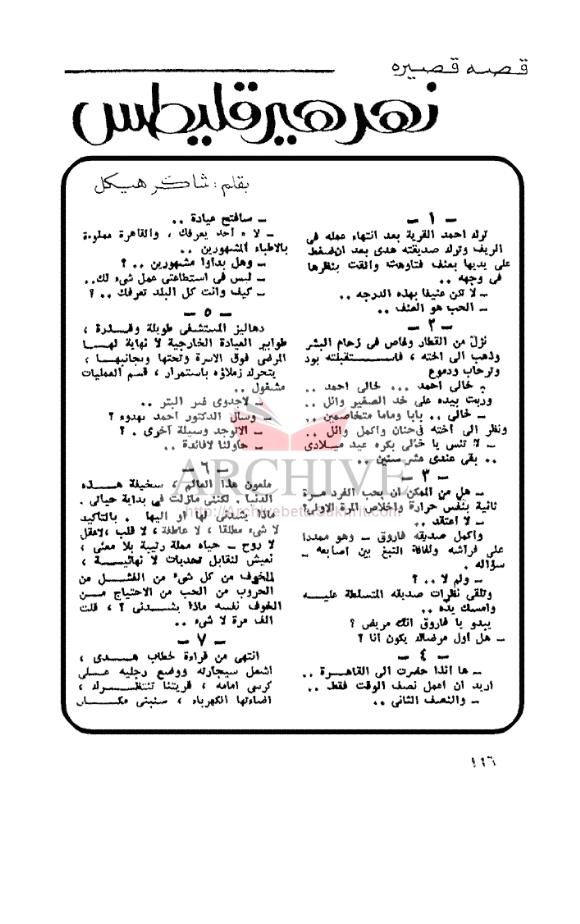 قصه قصيره
نهر هيرقليطس
بقلم : شاكر هيكل
- ١ -
ترك احمد القرية بعد انتهاء عمله فى
الريف وترك صديقته هدى بعد ان ضغط
على يديها بعنف فتاوهت والقت بنظرها
فى وجهه ..
- لا تكن عنيفا بهذه الدرجه ..
- الحب هو العنف ..
- ٢ -
نزل من القطار وغاص فى زحام البشر
وذهب الى اخته ، فاستقبلته بود
وترحاب ودموع
- خالى احمد ... خالى احمد ..
وربت بيده على خد الصغير وائل ..
- خالى .. بابا وماما متخاصمين ..
ونظر الى أخته فى حنان واكمل وائل ..
- لا تنس يا خالى بكره عيد ميلادى
.. بقى عندى عشر سنين ..
- ٣ -
- هل من الممكن ان يحب الفرد مرة
ثانية بنفس حرارة واخلاص المرة الاولى ؟
- لا اعتقد ..
واكمل صديقه فاروق - وهو ممددا
على فراشه ولفافة التبغ بين أصابعه -
سؤاله .
- ولم لا .. ؟
وتلقى نظرات صديقه المتسلطة عليه
وامسك يده ..
يبدو يا فاروق انك مريض ؟
- هل أول مرضاك يكون أنا ؟
- ٤ -
- ها أنذا حضرت الى القاهرة ..
اريد ان اعمل نصف الوقت فقط ..
- والنصف الثانى ..
- سافتح عيادة ..
- لا أحد يعرفك ، والقاهرة مملوءة
بالاطباء المشهورين ..
- وهل بداوا مشهورين .. ؟
- ليس فى استطاعتى عمل شىء لك ..
- كيف وانت كل البلد تعرفك .. ؟
- ٥ -
دهاليز المستشفى طويلة وقذرة ،
طوابير العيادة الخارجية لا نهاية لهما
المرضى فوق الاسرة وتحتها وبجانبها ،
يتحرك زملاؤه باستمرار ، قسم العمليات
مشغول ..
- لاجدوى غير البتر ..
- وسأل الدكتور احمد بهدوء ؟
- الاتوجد وسيلة أخرى . ؟
- حاولنا لافائدة ..
- ٦ -
ملعون هذا العالم ، سخيفة هذه
الدنيا . لكننى مازلت فى بداية حياتى .
ماذا يشدنى لها أو اليها . بالتأكيد
لا شىء مطلقا ، لا عاطفة ، لا قلب ، لاعقل
لا روح - حياه مملة رتيبة بلا معنى ،
نعيش لنقابل تحديات لا نهائية ،
الخوف من كل شىء من الفشل من
الحروب من الحب من الاحتياج من
الخوف نفسه ماذا يشدنى ؟ ، قلت
الف مرة لا شىء ..
- ٧ -
انتهى من قراءة خطاب هدى ،
اشعل سيجارته ووضع رجليه على
كرسى امامه ، قريتنا تنتظرك ،
اضاءتها الكهرباء ، سنبنى مكان
ARCHIVE
١٢٦